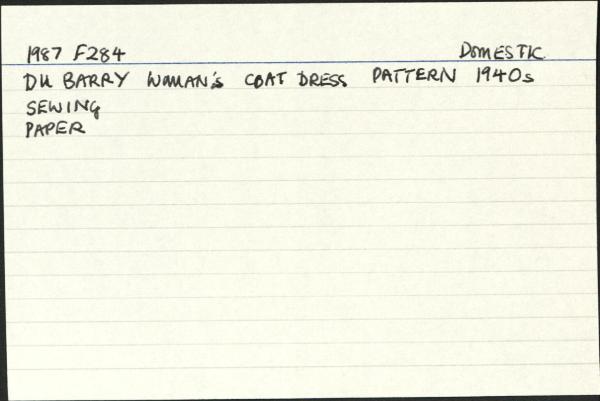 1987 F284 DOMESTIC
DU BARRY WOMAN'S COAT DRESS PATTERN 1940s
SEWING
PAPER